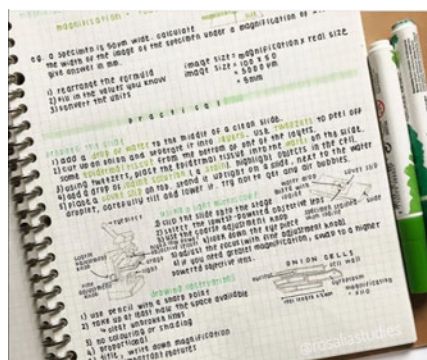 magnification
e.g. a specimen is 50μm wide. calculate
the width of the image of the specimen under a magnification of
give answer in mm.
image size = magnification x real size
image size = 100 x 50
1) rearrange the formula
= 5000 μm
2) fill in the values you know
= 5mm
3) convert the units
Practical
prepare the slide
1) add a drop of water to the middle of a clean slide.
2) cut up an onion and separate it into layers. use tweezers to peel off
some epidermal tissue from the bottom of one of the layers.
3) using tweezers, place the epidermal tissue into the water on the slide.
4) add a drop of iodine solution (a stain). highlight objects in the cell.
5) place a cover slip on top. stand it upright on the slide, next to the water
droplet. carefully tilt and lower it. try not to get any air bubbles.
using a light microscope
1) clip the slide onto the stage
2) select the lowest-powered objective lens
3) use the coarse adjustment knob
look down the eye piece
adjust the focus with fine adjustment knob.
if you need greater magnification, swap to a higher
powered objective lens.
eyepiece
coarse
adjustment
knob
fine
adjustment
knob
stage
light
cover slip
slide
drawing observations
1) use pencil with a sharp point
2) take up at least half the space available
↳ clear unbroken lines
3) no colouring or shading
4) proportional
title, write down magnification
features
ONION CELLS
cell wall
cytoplasm
magnification
@rosaliastudies